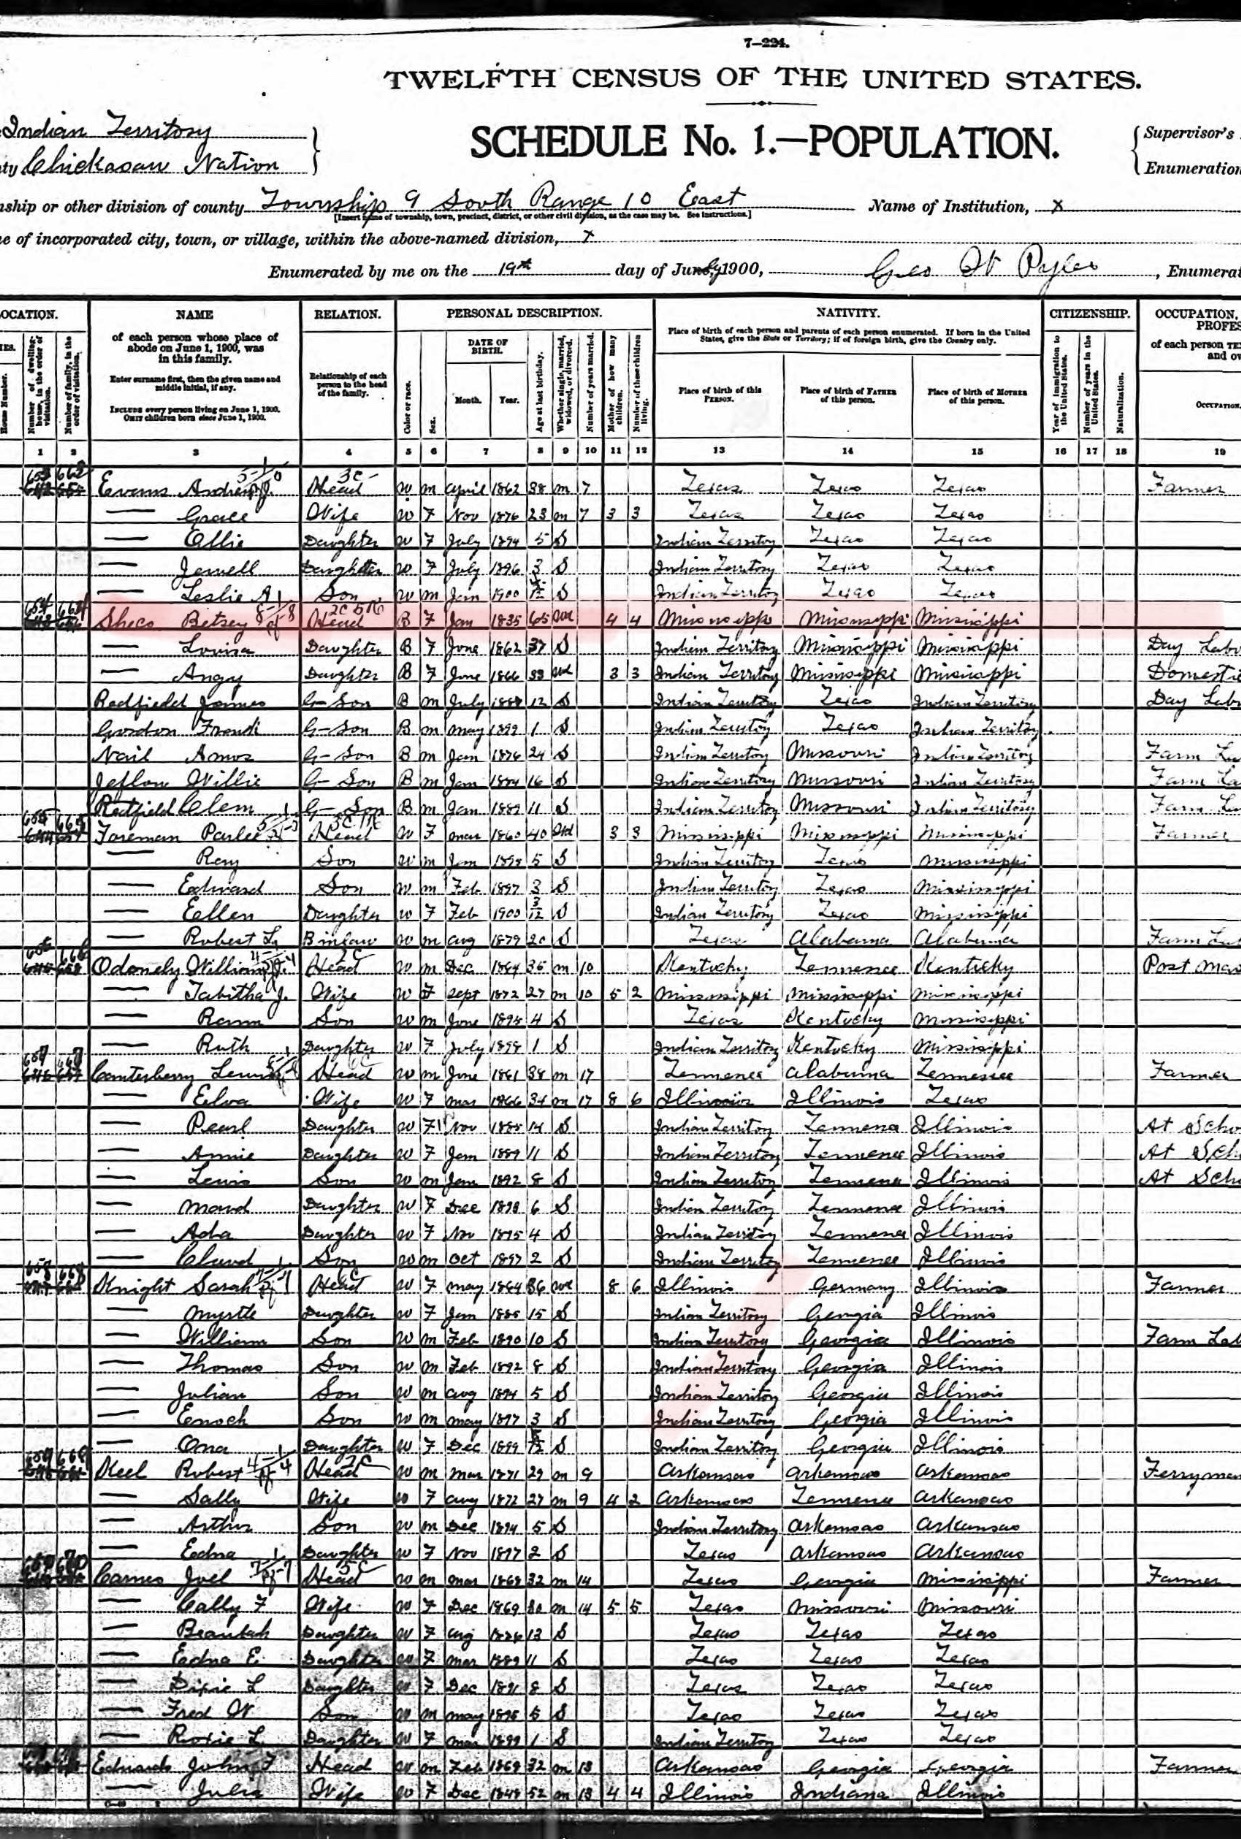 7-224.
TWELFTH CENSUS OF THE UNITED STATES.
Indian Territory
ty Chickasaw Nation
SCHEDULE No. 1.—POPULATION.
Supervisor's
Enumeration
nship or other division of county Township 9 South Range 10 East Name of Institution, X
[Insert name of township, town, precinct, district, or other civil division, as the case may be. See instructions.]
e of incorporated city, town, or village, within the above-named division, X
Enumerated by me on the 19th day of June 1900, Geo W , Enumerat
OCATION. NAME RELATION. PERSONAL DESCRIPTION. NATIVITY. CITIZENSHIP. OCCUPATION,
PROFES
of each person whose place of abode on June 1, 1900, was in this family.
Enter surname first, then the given name and middle initial, if any.
INCLUDE every person living on June 1, 1900. OMIT children born since June 1, 1900.
Relationship of each person to the head of the family.
House Number. Number of dwelling-house, in the order of visitation. Number of family, in the order of visitation.
Color or race. Sex. DATE OF BIRTH. Month. Year. Age at last birthday. Whether single, married, widowed, or divorced. Number of years married. Mother of how many children. Number of these children living.
Place of birth of each person and parents of each person enumerated. If born in the United States, give the State or Territory; if of foreign birth, give the Country only.
Place of birth of this PERSON. Place of birth of FATHER of this person. Place of birth of MOTHER of this person.
Year of immigration to the United States. Number of years in the United States. Naturalization.
of each person TE
and ov
OCCUPATION.
1 2 3 4 5 6 7 8 9 10 11 12 13 14 15 16 17 18 19
653 662 Evans Andrew J. Head W M April 1862 38 M 7 Texas Texas Texas Farmer
— Grace Wife W F Nov 1876 23 M 7 3 3 Texas Texas Texas
— Ollie Daughter W F July 1894 5 S Indian Territory Texas Texas
— Jewell Daughter W F July 1896 3 S Indian Territory Texas Texas
— Leslie A Son W M Jan 1900 S Indian Territory Texas Texas
654 664 Sheco Betsey Head B F Jan 1835 65 Wd 4 4 Mississippi Mississippi Mississippi
— Louisa Daughter B F June 1862 37 S Indian Territory Mississippi Mississippi Day Labo
— Angy Daughter B F June 1866 33 Wd 3 3 Indian Territory Mississippi Mississippi Domestic
Redfield James G-Son B M July 1888 12 S Indian Territory Texas Indian Territory Day Labo
Gordon Frank G-Son B M May 1899 1 S Indian Territory Texas Indian Territory
Nail Amos G-Son B M Jan 1876 24 S Indian Territory Missouri Indian Territory Farm La
Willie G-Son B M Jan 1884 16 S Indian Territory Missouri Indian Territory Farm La
Redfield Clem G-Son B M Jan 1889 11 S Indian Territory Missouri Indian Territory Farm La
655 665 Foreman Parlee Head W F Mar 1860 40 Wd 3 3 Mississippi Mississippi Mississippi Farmer
— Roy Son W M Jan 5 S Indian Territory Texas Mississippi
— Edward Son W M Feb 1897 3 S Indian Territory Texas Mississippi
— Ellen Daughter W F Feb 1900 3/12 S Indian Territory Texas Mississippi
— Robert L. B inlaw W M Aug 1879 20 S Texas Alabama Alabama Farm Lab
656 666 Odonely William J. Head W M Dec 1864 35 M 10 Kentucky Tennessee Kentucky Post Mas
— Tabitha J. Wife W F Sept 1872 27 M 10 5 2 Mississippi Mississippi Mississippi
— Son W M June 4 S Texas Kentucky Mississippi
— Ruth Daughter W F July 1898 1 S Indian Territory Kentucky Mississippi
657 667 Canterberry Lewis Head W M June 1861 38 M 17 Tennessee Alabama Tennessee Farmer
— Wife W F Mar 1866 34 M 17 8 6 Illinois Illinois Texas
— Pearl Daughter W F Nov 1885 14 S Indian Territory Tennessee Illinois At Scho
— Annie Daughter W F Jan 1889 11 S Indian Territory Tennessee Illinois At Scho
— Lewis Son W M Jan 1892 8 S Indian Territory Tennessee Illinois At Scho
— Maud Daughter W F Dec 1893 6 S Indian Territory Tennessee Illinois
— Ada Daughter W F Nov 1895 4 S Indian Territory Tennessee Illinois
— Claud Son W M Oct 1897 2 S Indian Territory Tennessee Illinois
658 668 Knight Sarah Head W F May 1864 36 Wd 8 6 Illinois Germany Illinois Farmer
— Myrtle Daughter W F Jan 1885 15 S Indian Territory Georgia Illinois
— William Son W M Feb 1890 10 S Indian Territory Georgia Illinois Farm Lab
— Thomas Son W M Feb 1892 8 S Indian Territory Georgia Illinois
— Julian Son W M Aug 1894 5 S Indian Territory Georgia Illinois
— Enoch Son W M May 1897 3 S Indian Territory Georgia Illinois
— Ona Daughter W F Dec 1899 S Indian Territory Georgia Illinois
659 669 Keel Robert Head W M Mar 1871 29 M 9 Arkansas Arkansas Arkansas Ferryman
— Sally Wife W F Aug 1872 27 M 9 4 2 Arkansas Tennessee Arkansas
— Arthur Son W M Dec 1894 5 S Indian Territory Arkansas Arkansas
— Edna Daughter W F Nov 1897 2 S Texas Arkansas Arkansas
660 670 Carnes Joel Head W M Mar 1868 32 M 14 Texas Georgia Mississippi Farmer
— Cally F Wife W F Dec 1869 30 M 14 5 5 Texas Missouri Missouri
— Beaulah Daughter W F Aug 1886 13 S Texas Texas Texas
— Edna E. Daughter W F Mar 1889 11 S Texas Texas Texas
— Dixie L Daughter W F Dec 1891 8 S Texas Texas Texas
— Fred W Son W M May 1895 5 S Texas Texas Texas
— Roxie L. Daughter W F Mar 1899 1 S Indian Territory Texas Texas
Edwards John F Head W M Feb 1868 32 M 13 Arkansas Georgia Georgia Farmer
— Julia Wife W F Dec 1848 52 M 13 4 4 Illinois Indiana Illinois